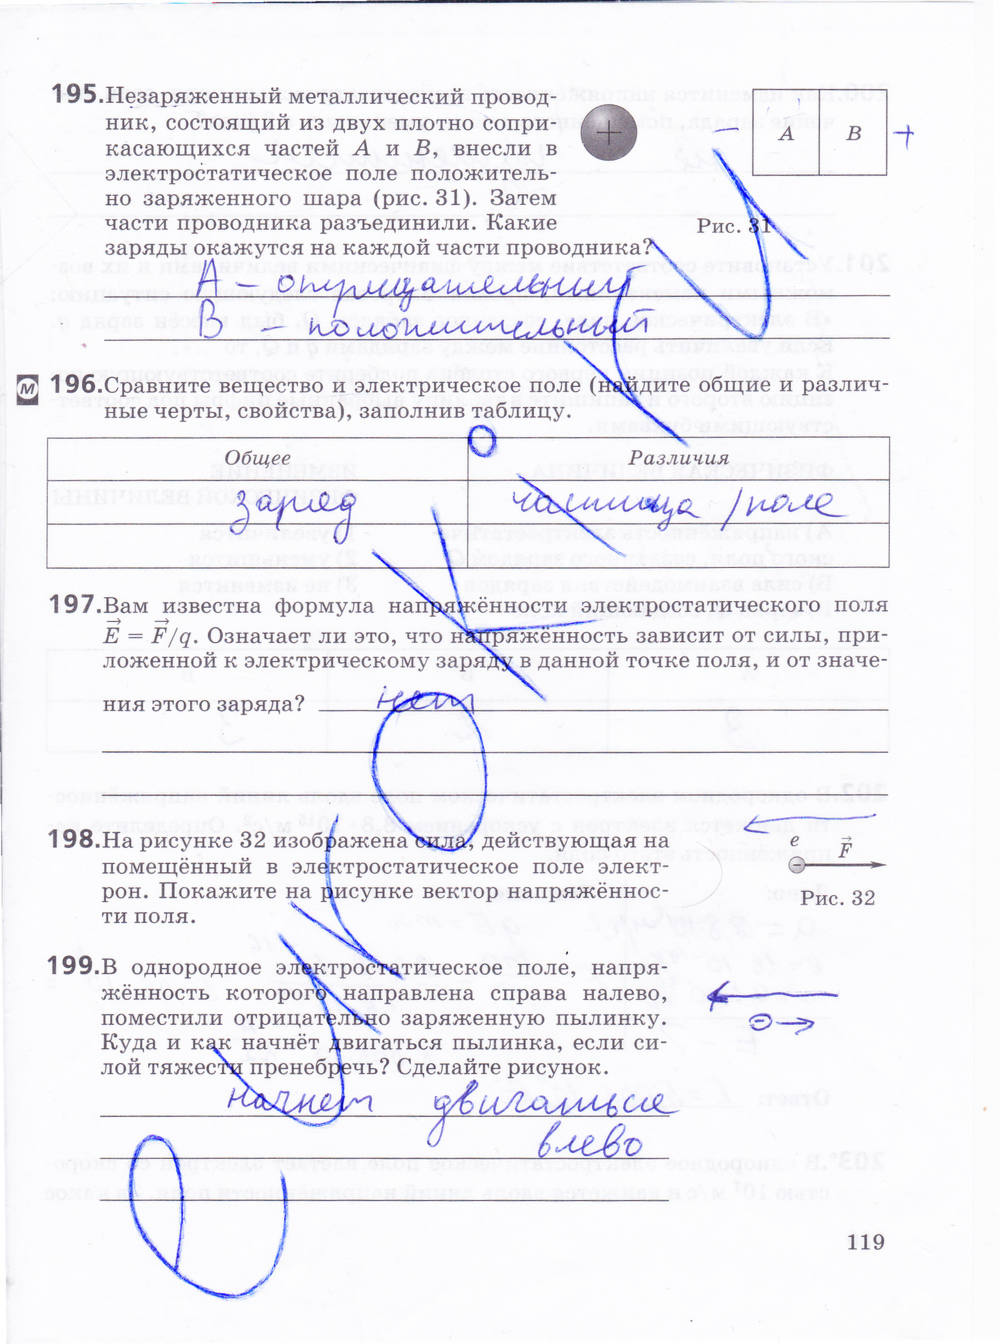 195. Незаряженный металлический провод-
ник, состоящий из двух плотно сопри-
касающихся частей A и B, внесли в
электростатическое поле положитель-
но заряженного шара (рис. 31). Затем
части проводника разъединили. Какие
заряды окажутся на каждой части проводника?
+
− A B +
Рис. 31
A – отрицательный
B – положительный
196. Сравните вещество и электрическое поле (найдите общие и различ-
ные черты, свойства), заполнив таблицу.
Общее Различия
заряд частица / поле
197. Вам известна формула напряжённости электростатического поля
E = F/q. Означает ли это, что напряжённость зависит от силы, при-
ложенной к электрическому заряду в данной точке поля, и от значе-
ния этого заряда? нет
198. На рисунке 32 изображена сила, действующая на
помещённый в электростатическое поле элект-
рон. Покажите на рисунке вектор напряжённос-
ти поля.
e F
Рис. 32
199. В однородное электростатическое поле, напря-
жённость которого направлена справа налево,
поместили отрицательно заряженную пылинку.
Куда и как начнёт двигаться пылинка, если си-
лой тяжести пренебречь? Сделайте рисунок.
начнет двигаться
влево
119